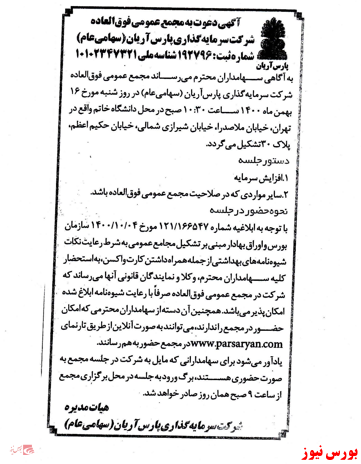 آگهی دعوت به مجمع عمومی فوق العاده
شرکت سرمایه گذاری پارس آریان (سهامی عام)
شماره ثبت: ۱۹۲۷۹۶ شناسه ملی ۱۰۱۰۲۳۴۷۳۲۱
پارس آریان
به آگاهی سهامداران محترم می رساند مجمع عمومی فوق العاده
شرکت سرمایه گذاری پارس آریان (سهامی عام) در روز شنبه مورخ ۱۶
بهمن ماه ۱۴۰۰ ساعت ۱۰:۳۰ صبح در محل دانشگاه خاتم واقع در
تهران، خیابان ملاصدرا، خیابان شیرازی شمالی، خیابان حکیم اعظم،
پلاک ۳۰ تشکیل می گردد.
دستور جلسه
۱.افزایش سرمایه
۲.سایر مواردی که در صلاحیت مجمع عمومی فوق العاده باشد.
نحوه حضور در جلسه
با توجه به ابلاغیه شماره ۱۲۱/۱۶۶۵۴۷ مورخ ۱۴۰۰/۱۰/۰۴ سازمان
بورس و اوراق بهادار مبنی بر تشکیل مجامع عمومی به شرط رعایت نکات
شیوه نامه های بهداشتی از جمله همراه داشتن کارت واکسن، به استحضار
کلیه سهامداران محترم، وکلا و نمایندگان قانونی آنها می رساند که
شرکت در مجمع عمومی فوق العاده صرفاً با رعایت شیوه نامه ابلاغ شده
امکان پذیر می باشد. همچنین آن دسته از سهامداران محترمی که امکان
حضور در مجمع را ندارند، می توانند به صورت آنلاین از طریق تارنمای
www.parsaryan.com در مجمع حضور به هم رسانند.
یادآور می شود برای سهامدارانی که مایل به شرکت در جلسه مجمع به
صورت حضوری هستند، برگ ورود به جلسه در محل برگزاری مجمع
از ساعت ۹ صبح همان روز صادر خواهد شد.
هیات مدیره
شرکت سرمایه گذاری پارس آریان (سهامی عام)
بورس نیوز